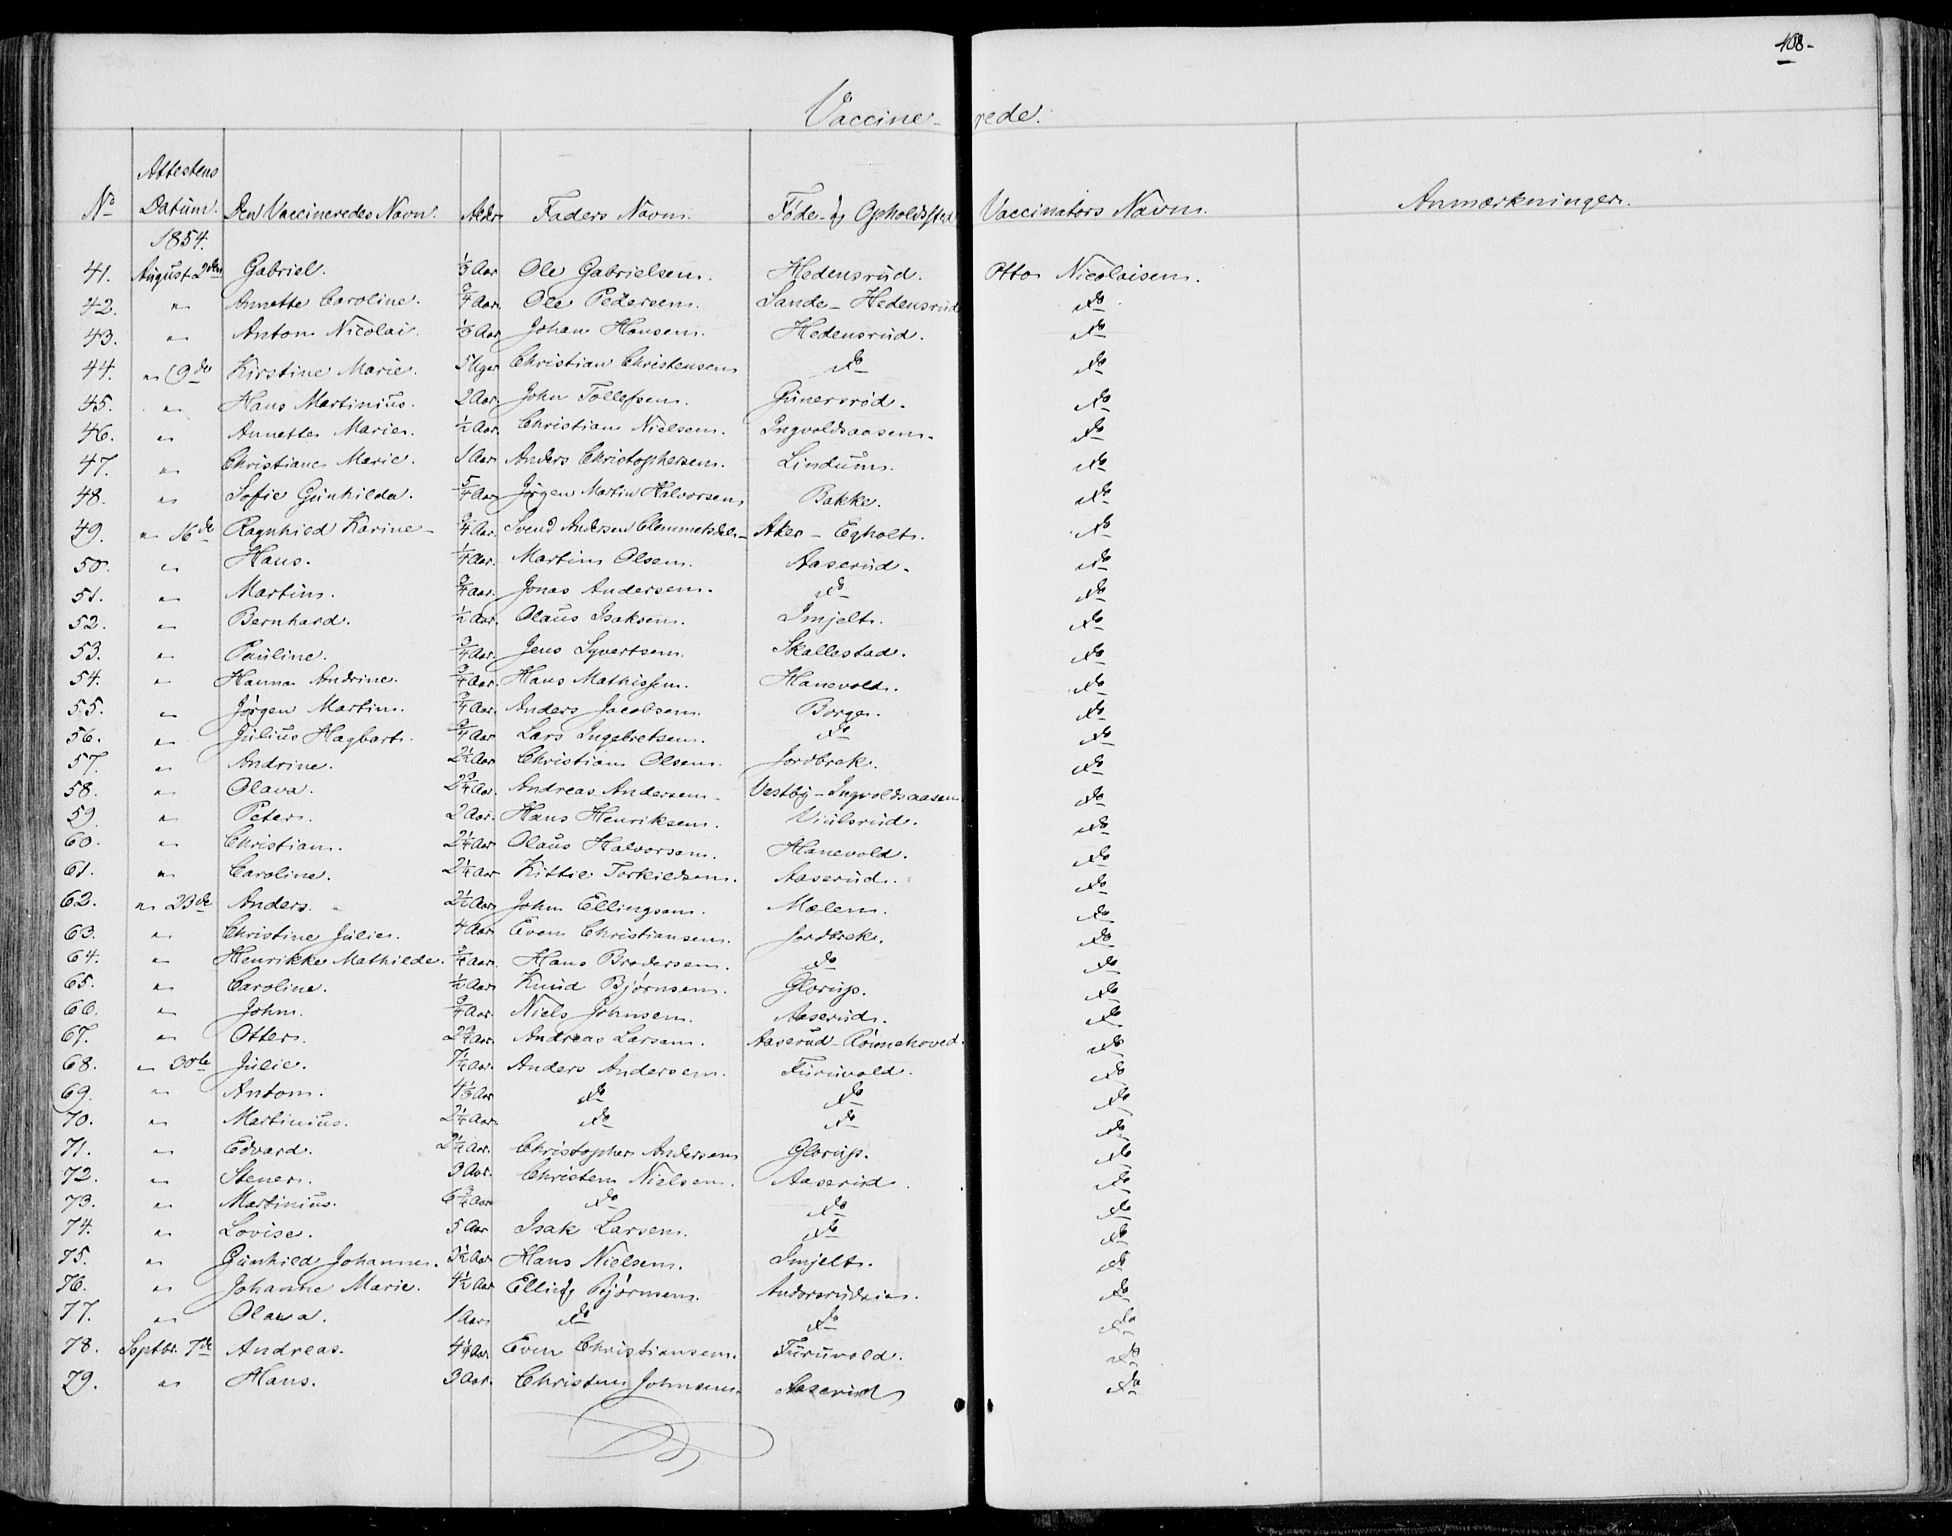 408-
Vaccine- rede.
No Attestens Datum. Den Vaccineredes Navn. Alder Faders Navn. Føde- og Opholdssted Vaccinators Navn. Anmærkninger.
1854.
41. August 2den Gabriel. 1/3 Aar Ole Gabrielsen. Hedensrud. Otto Nicolaisen.
42. " Annette Caroline. 3/4 Aar. Ole Pedersen. Sande - Hedensrud do
43. " Anton Nicolai. 1/3 Aar Johan Hansen. Hedensrud. do
44. " 9de Kirstine Marie. 5 Uger Christian Christensen do do
45. " Hans Martinius. 2 Aar John Tollefsen. Gunersrød. do
46. " Annette Marie. 1/2 Aar. Christian Nielsen. Ingvoldsaasen. do
47. " Christiane Marie. 1 Aar Anders Christophersen. Lindum. do
48. " Sofie Gunhilda. 5/4 Aar Jørgen Martin Halvorsen Bakke. do
49. " 16de Ragnhild Karine 3/4 Aar. Svend Andersen Clemmetsdal Aker - Egholt. do
50. " Hans. 1/4 Aar. Martin Olsen. Aaserud. do
51. " Martin. 3/4 Aar. Jonas Andersen. do do
52. " Bernhard. 1/2 Aar. Olaus Isaksen. Imjelt. do
53. " Pauline. 3/4 Aar. Jens Syvertsen. Skallestad. do
54. " Hanna Andrine. 3/4 Aar. Hans Mathissen. Hanevold. do
55. " Jørgen Martin. 3/4 Aar. Anders Jacobsen. Borge. do
56. " Julius Hagbart. 3/4 Aar Lars Ingebretsen. do do
57. " Andrine. 2 1/2 Aar Christian Olsen. Jordbrek. do
58. " Olava. 2 3/4 Aar. Andreas Andersen. Vestby - Ingvoldsaasen do
59. " Peter. 2 Aar. Hans Henriksen. Viulsrud. do
60. " Christian. 2 1/4 Aar Olaus Halvorsen. Hanevold. do
61. " Caroline. 2 1/4 Aar Kittil Torkildsen. Aaserud. do
62. " 23de Anders. 2 1/2 Aar John Ellingsen. Mælen. do
63. " Christine Julie. 4 Aar Even Christiansen. Jordbrek. do
64. " Henrikke Mathilde. 3/4 Aar. Hans Brodersen. do do
65. " Caroline. 1/2 Aar Knud Bjørnsen. Glorup. do
66. " John. 3/4 Aar. Niels Johnsen. Aaserud. do
67. " Otter. 2 3/4 Aar. Andreas Larsen. Aaserud - Rønnehoved. do
68. " 30te Julie. 7 1/2 Aar. Anders Andersen. Furuvold. do
69. " Anton. 4 1/3 Aar do do do
70. " Martinius. 2 1/4 Aar. do do do
71. " Edvard. 2 1/2 Aar. Christopher Andersen Glorup. do
72. " Stener. 3 Aar. Christen Nielsen. Aaserud. do
73. " Martinius. 6 3/4 Aar do do do
74. " Lovise. 5 Aar Isak Larsen. do do
75. " Gunhild Johanne. 3 1/2 Aar Hans Nielsen. Imjelt. do
76. " Johanne Marie. 4 1/2 Aar Elling Bjørnsen. Andorsrudeie. do
77. " Olava. 1 Aar do do do
78. Septbr. 7de Andreas. 4 1/4 Aar Even Christiansen. Furuvold. do
79. " Hans. 3 Aar. Christen Johnsen. Aaserud do